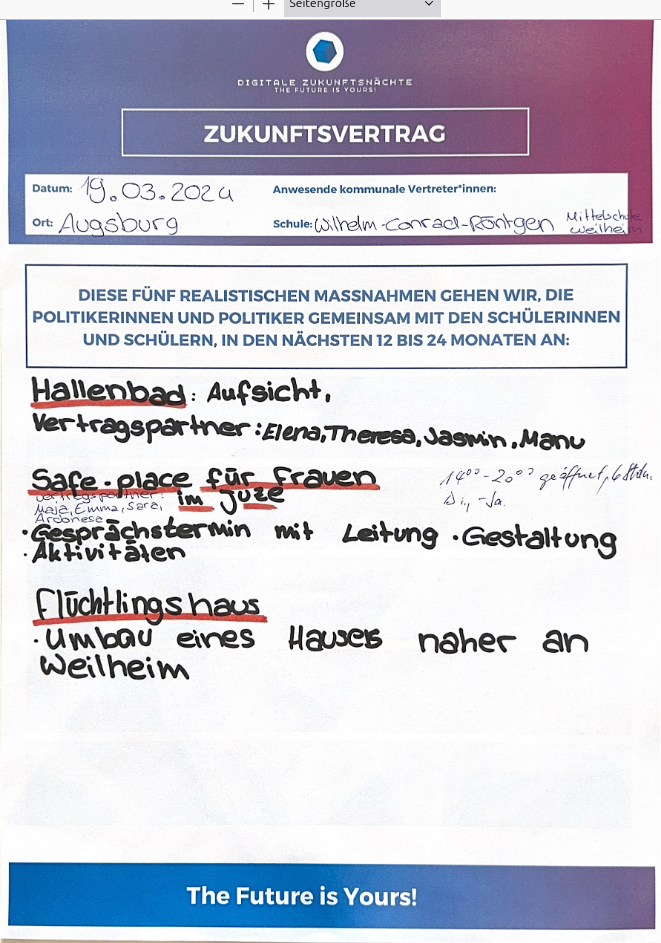 Seitengröße
DIGITALE ZUKUNFTSNÄCHTE
THE FUTURE IS YOURS!
ZUKUNFTSVERTRAG
Datum: 19.03.2024
Anwesende kommunale Vertreter*innen:
Ort: Augsburg
Schule: Wilhelm-Conrad-Röntgen Mittelschule
Weilheim
DIESE FÜNF REALISTISCHEN MASSNAHMEN GEHEN WIR, DIE
POLITIKERINNEN UND POLITIKER GEMEINSAM MIT DEN SCHÜLERINNEN
UND SCHÜLERN, IN DEN NÄCHSTEN 12 BIS 24 MONATEN AN:
Hallenbad: Aufsicht,
Vertragspartner: Elena, Theresa, Jasmin, Manu
Safe-place für Frauen
im Juze
Vertragspartner:
Maja, Emma, Sara,
Ardonesa
14⁰⁰-20⁰⁰ geöffnet, 6 Stdn.
Di., -Sa.
·Gesprächstermin mit Leitung ·Gestaltung
·Aktivitäten
Flüchtlingshaus
·Umbau eines Hauses naher an
Weilheim
The Future is Yours!